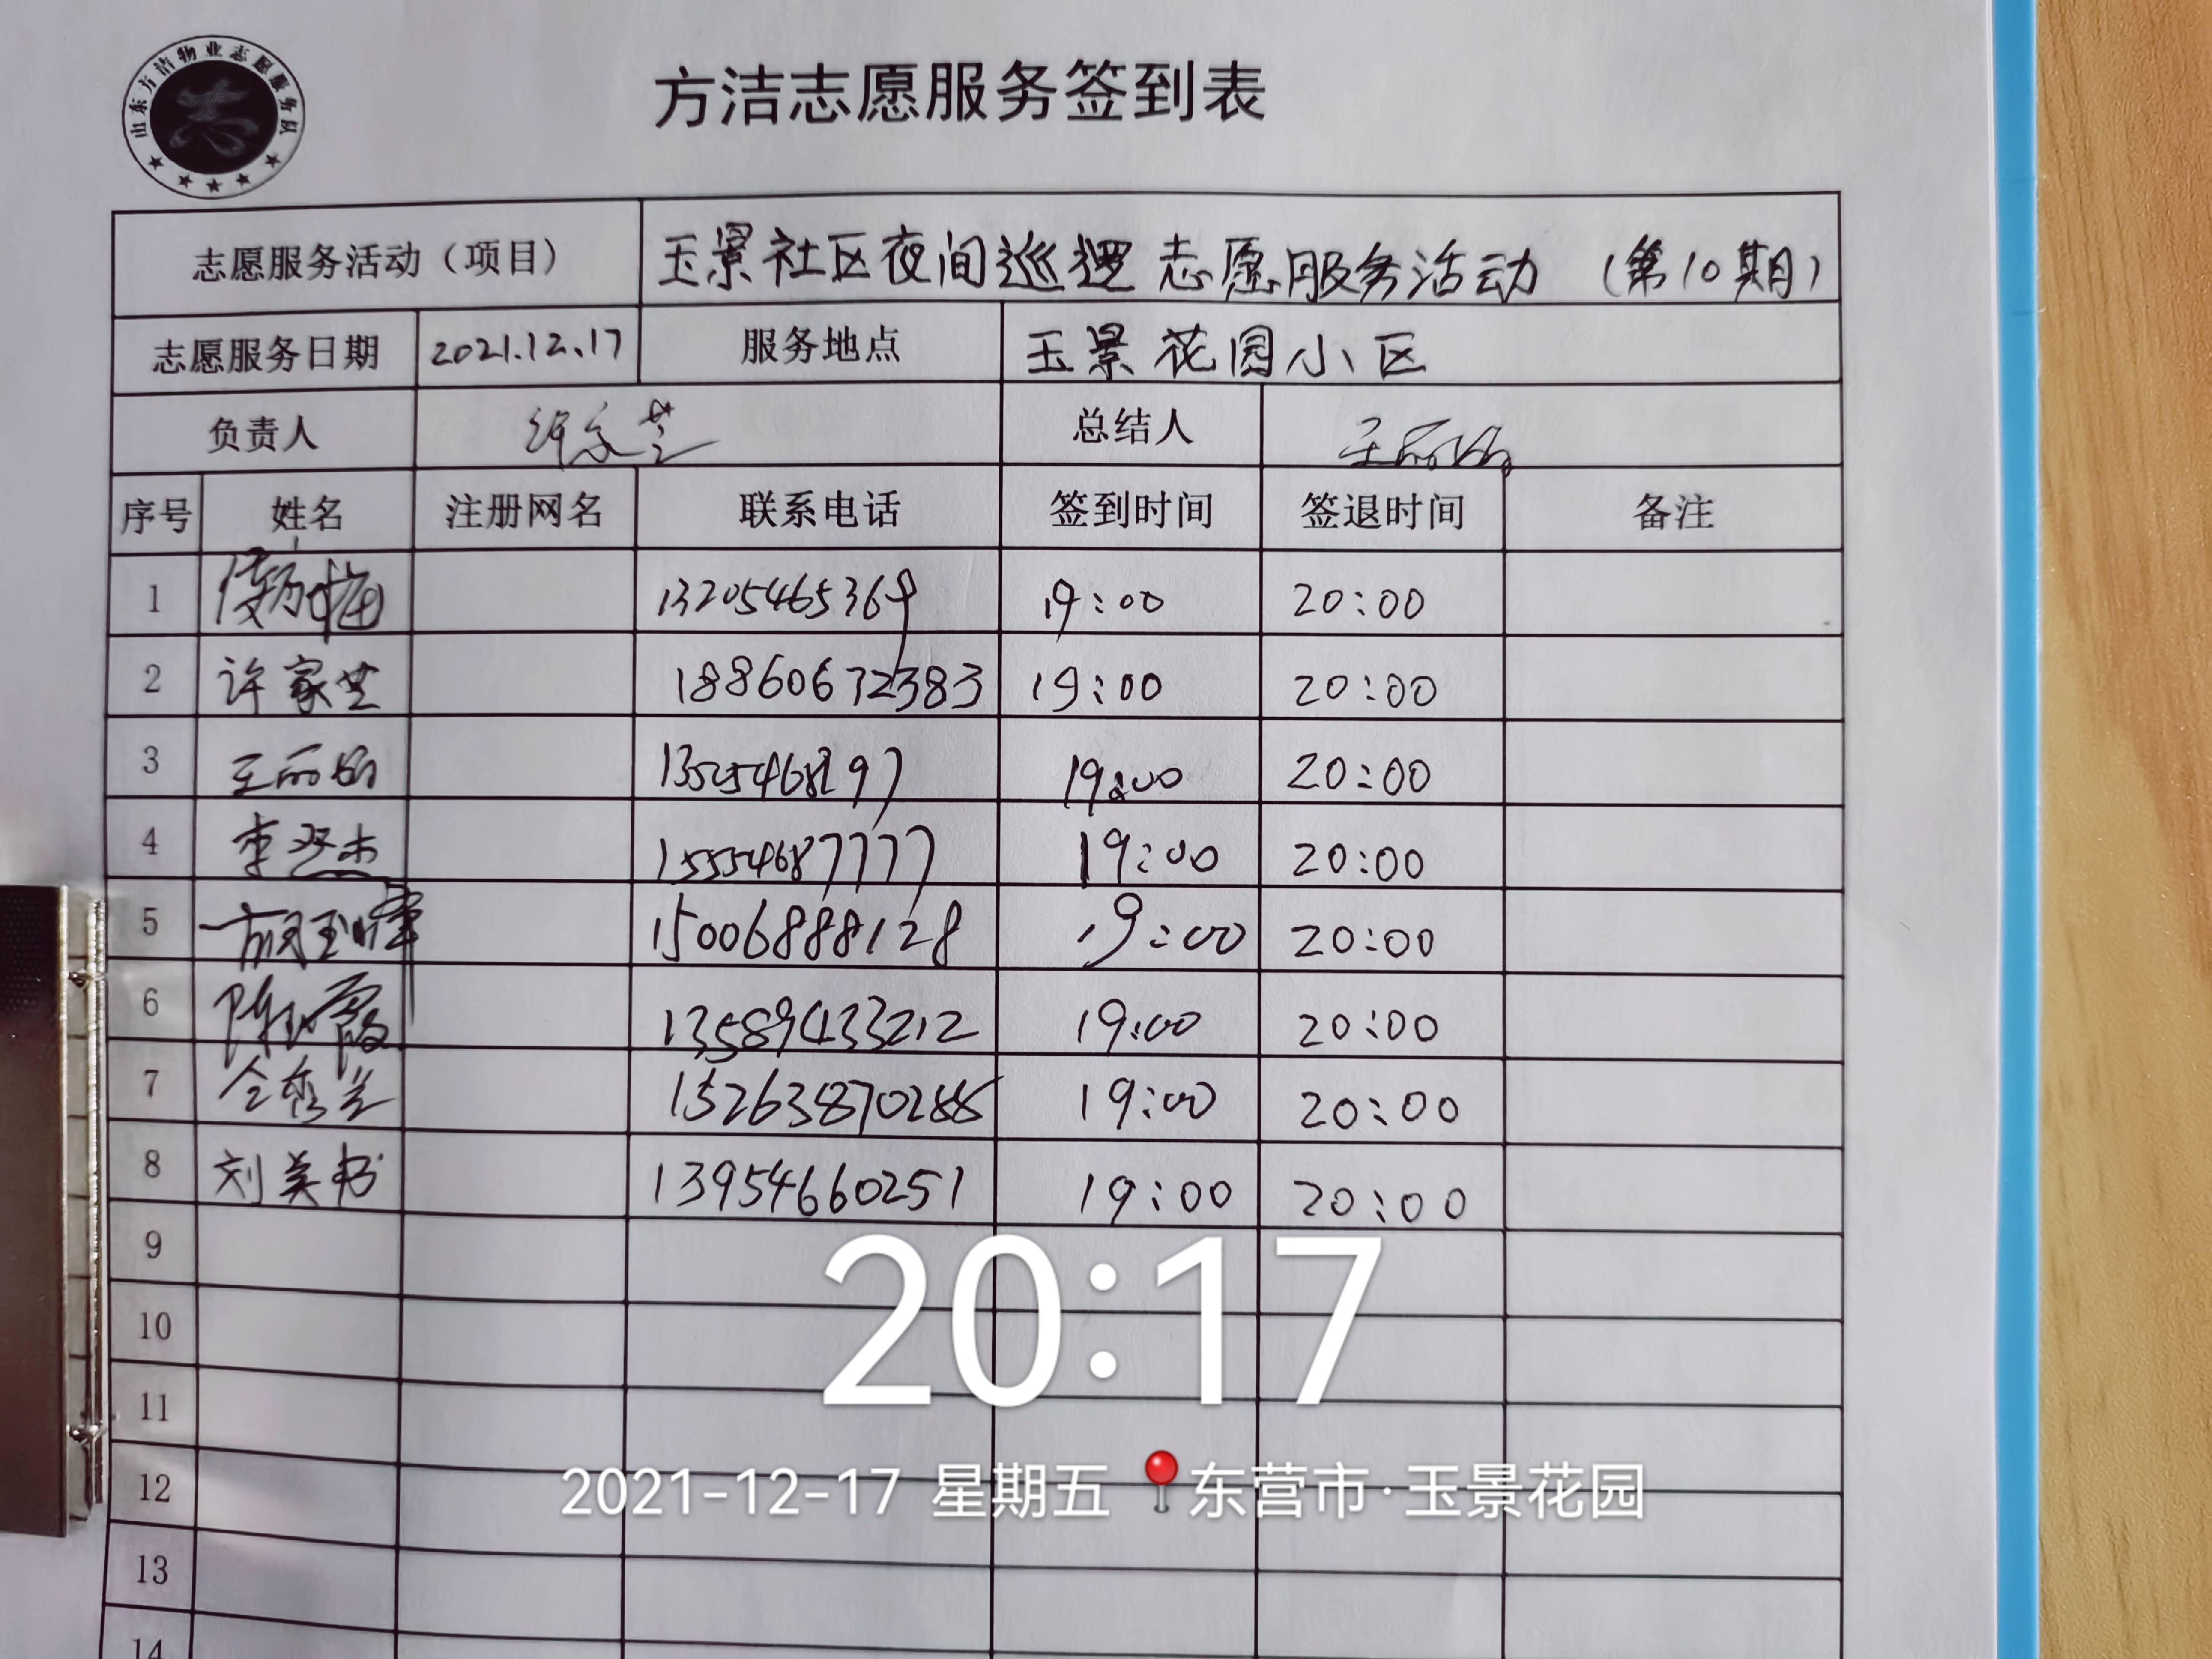 山东方洁物业志愿服务队
志
方洁志愿服务签到表
志愿服务活动（项目） 玉景社区夜间巡逻志愿服务活动（第10期）
志愿服务日期 2021.12.17 服务地点 玉景花园小区
负责人 许家芝 总结人 王丽娟
序号 姓名 注册网名 联系电话 签到时间 签退时间 备注
1 13205465369 19:00 20:00
2 许家芝 18860672383 19:00 20:00
3 王丽娟 19:00 20:00
4 15554687777 19:00 20:00
5 15006888128 19:00 20:00
6 13589433212 19:00 20:00
7 19:00 20:00
8 刘美书 13954660251 19:00 20:00
9
10
11
12
13
14
20:17
2021-12-17 星期五 东营市·玉景花园